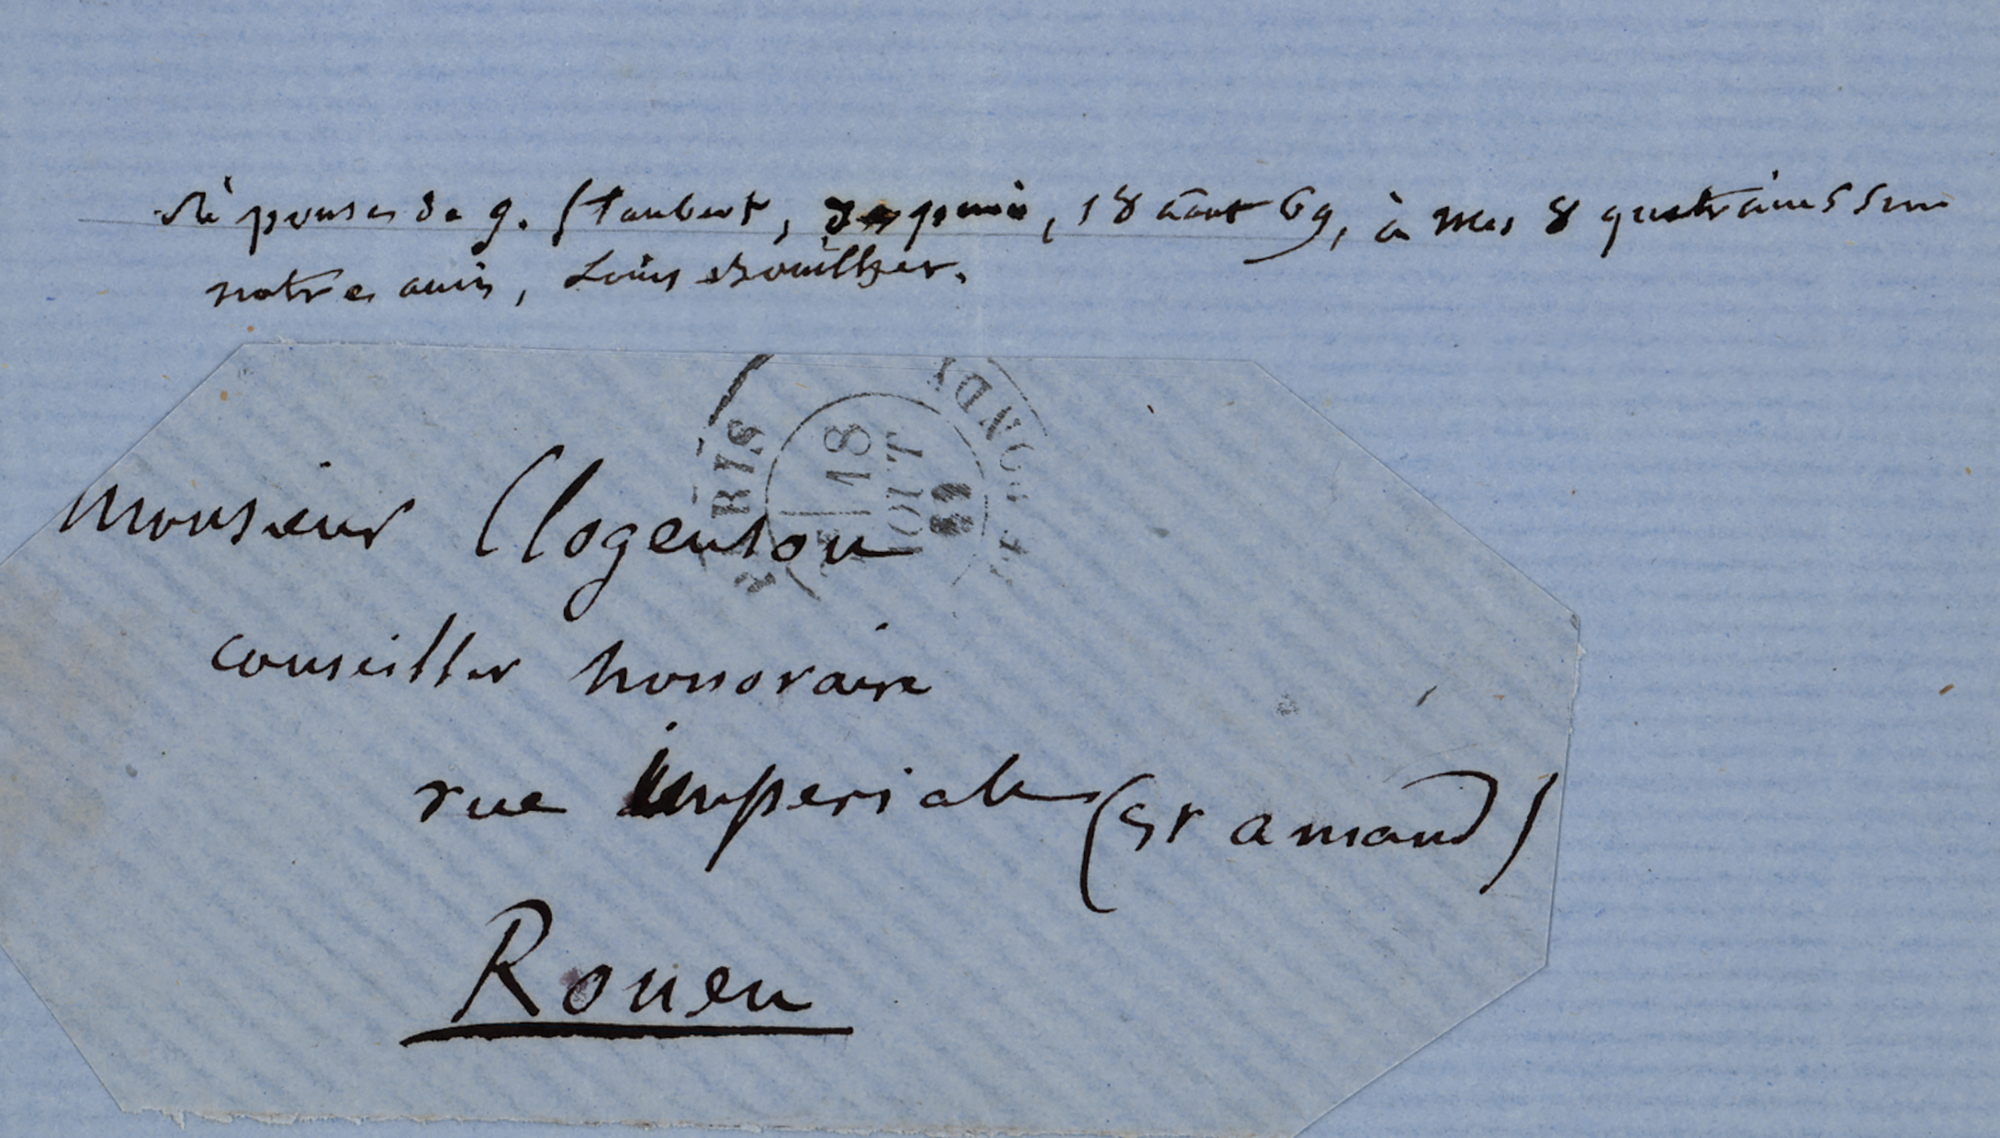 Réponse de g. flaubert, de paris, 18 aout 69, à mes 8 quatrains sur
notre ami, Louis Bouilhet.
18
AOUT
69
Monsieur Clogenson
conseiller honoraire
rue impériale (St amand)
Rouen